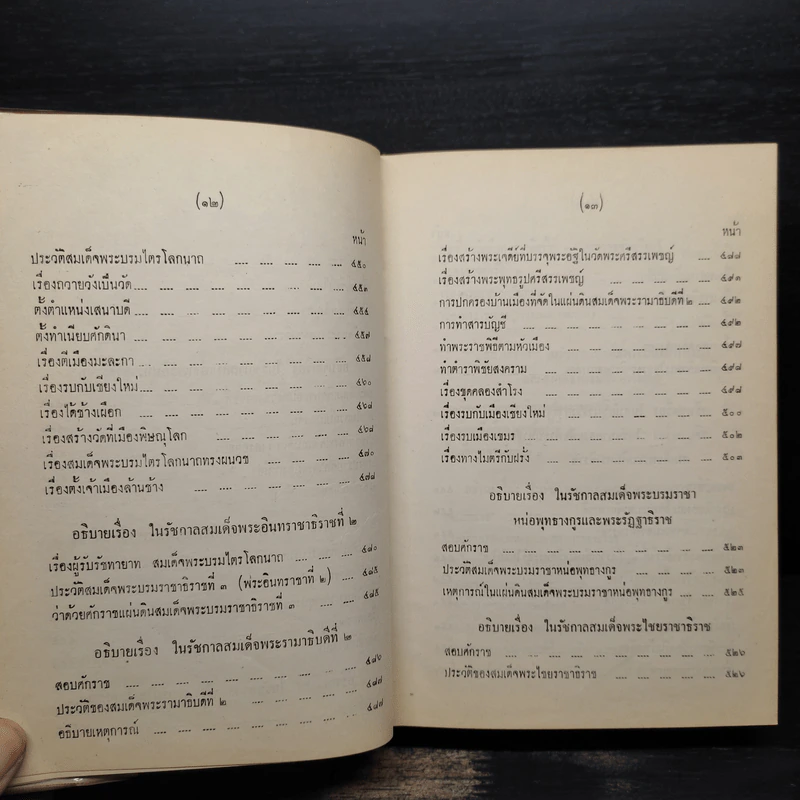 (๑๒)
หน้า
ประวัติสมเด็จพระบรมไตรโลกนาถ .... .... .... .... .... ๔๕๐
เรื่องถวายวังเป็นวัด .... .... .... .... .... .... .... ๔๕๓
ตั้งตำแหน่งเสนาบดี .... .... .... .... .... .... .... ๔๕๔
ตั้งทำเนียบศักดินา .... .... .... .... .... .... .... ๔๕๗
เรื่องตีเมืองมะละกา .... .... .... .... .... .... .... ๔๕๘
เรื่องรบกับเชียงใหม่ .... .... .... .... .... .... .... ๔๖๐
เรื่องได้ช้างเผือก .... .... .... .... .... .... .... ๔๖๘
เรื่องสร้างวัดที่เมืองพิษณุโลก .... .... .... .... .... ๔๖๘
เรื่องสมเด็จพระบรมไตรโลกนาถทรงผนวช .... .... .... .... ๔๗๐
เรื่องตั้งเจ้าเมืองล้านช้าง .... .... .... .... .... .... ๔๗๘
อธิบายเรื่อง ในรัชกาลสมเด็จพระอินทราชาธิราชที่ ๒
เรื่องผู้รับรัชทายาท สมเด็จพระบรมไตรโลกนาถ .... .... .... ๔๘๐
ประวัติสมเด็จพระบรมราชาธิราชที่ ๓ (พระอินทราชาที่ ๒) .... ๔๘๕
ว่าด้วยศักราชแผ่นดินสมเด็จพระบรมราชาธิราชที่ ๓ .... .... ๔๘๕
อธิบายเรื่อง ในรัชกาลสมเด็จพระรามาธิบดีที่ ๒
สอบศักราช .... .... .... .... .... .... .... .... ๔๘๖
ประวัติของสมเด็จพระรามาธิบดีที่ ๒ .... .... .... .... .... ๔๘๗
อธิบายเหตุการณ์ .... .... .... .... .... .... .... ๔๘๗
(๑๓)
หน้า
เรื่องสร้างพระเจดีย์ที่บรรจุพระอัฐิในวัดพระศรีสรรเพชญ์ .... ๔๘๘
เรื่องสร้างพระพุทธรูปศรีสรรเพชญ์ .... .... .... .... .... ๔๙๑
การปกครองบ้านเมืองที่จัดในแผ่นดินสมเด็จพระรามาธิบดีที่ ๒ ๔๙๒
การทำสารบัญชี .... .... .... .... .... .... .... ๔๙๒
ทำพระราชพิธีตามหัวเมือง .... .... .... .... .... .... ๔๙๗
ทำตำราพิชัยสงคราม .... .... .... .... .... .... .... ๔๙๘
เรื่องขุดคลองสำโรง .... .... .... .... .... .... .... ๔๙๘
เรื่องรบกับเมืองเชียงใหม่ .... .... .... .... .... .... ๕๐๐
เรื่องรบเมืองเขมร .... .... .... .... .... .... .... ๕๐๒
เรื่องทางไมตรีกับฝรั่ง .... .... .... .... .... .... .... ๕๐๓
อธิบายเรื่อง ในรัชกาลสมเด็จพระบรมราชา
หน่อพุทธางกูรและพระรัฏฐาธิราช
สอบศักราช .... .... .... .... .... .... .... .... ๕๒๓
ประวัติสมเด็จพระบรมราชาหน่อพุทธางกูร .... .... .... .... ๕๒๓
เหตุการณ์ในแผ่นดินสมเด็จพระบรมราชาหน่อพุทธางกูร .... .... ๕๒๕
อธิบายเรื่อง ในรัชกาลสมเด็จพระไชยราชาธิราช
สอบศักราช .... .... .... .... .... .... .... .... ๕๒๖
ประวัติของสมเด็จพระไชยราชาธิราช .... .... .... .... .... ๕๒๖